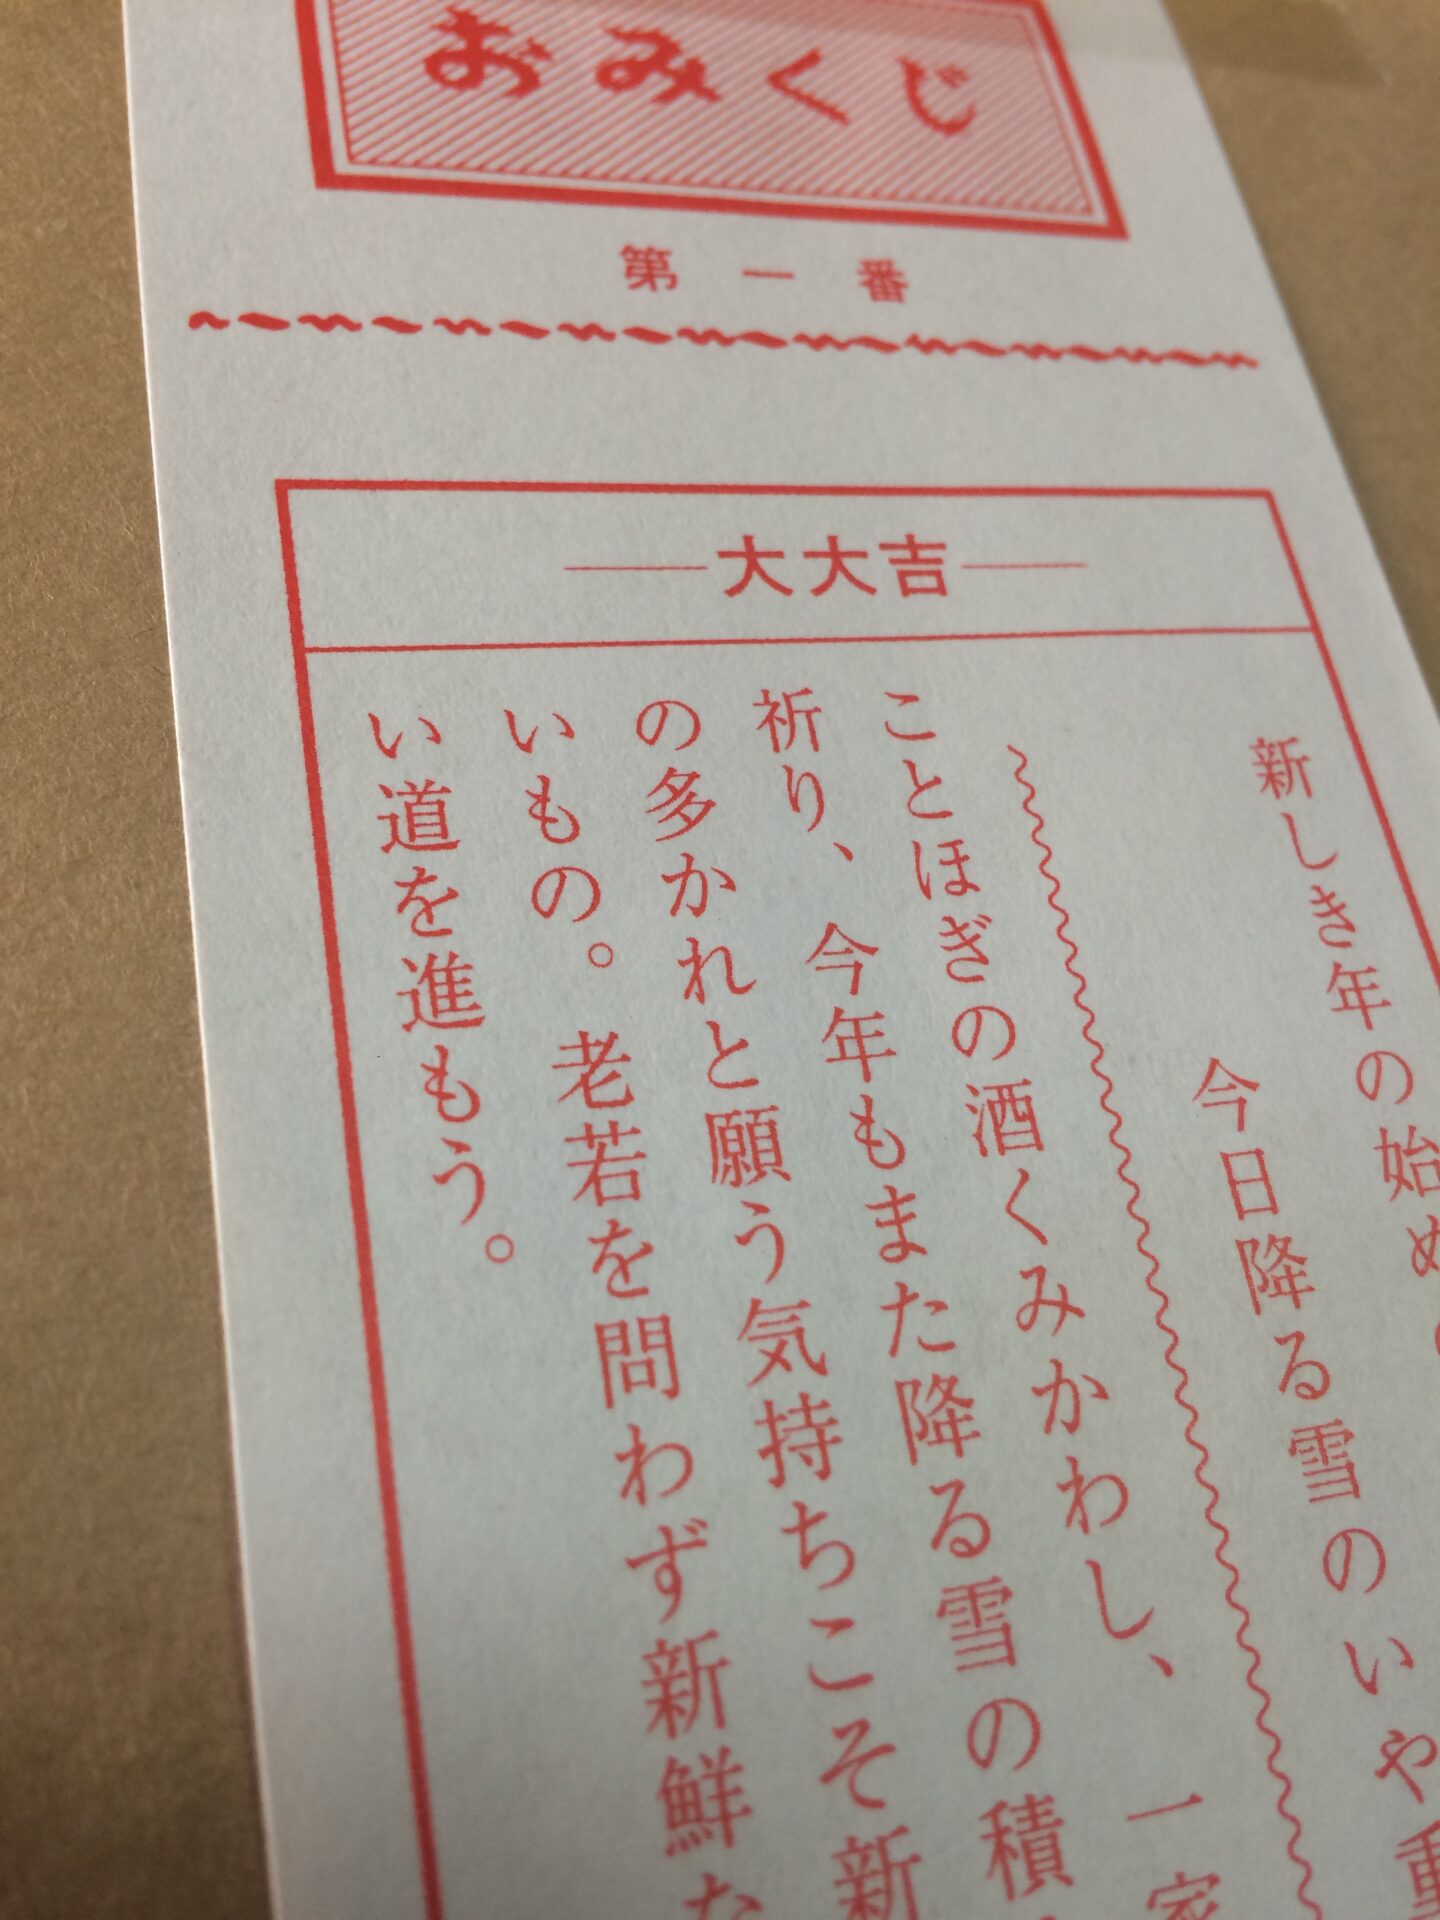 おみくじ
第一番
大大吉
新しき年の始め
今日降る雪のいや重
ことほぎの酒くみかわし、一家
祈り、今年もまた降る雪の積
の多かれと願う気持ちこそ新
いもの。老若を問わず新鮮な
い道を進もう。